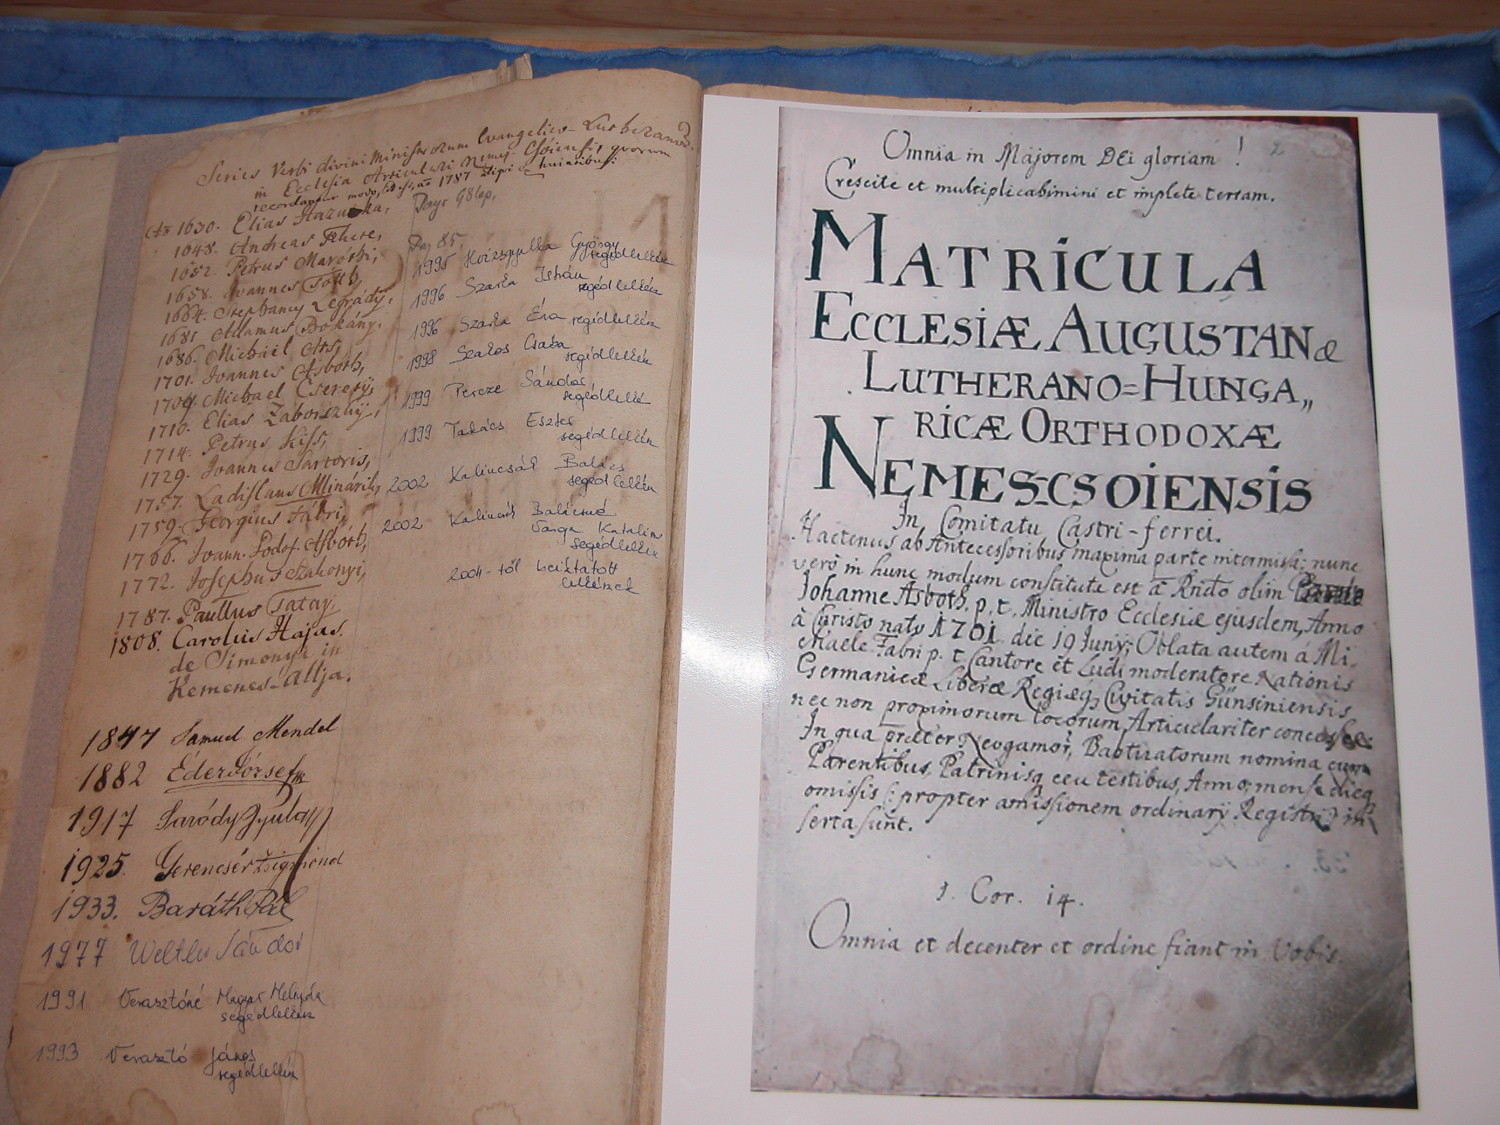 Series Verbi divini Ministrorum Evangelico-Lutheranor.
in Ecclesia Articulari Nemes Csóiensi, quorum
recordantur modo, id est, ao 1787 stipi hujatibus
1630. Elias Hazucka,
1648. Andreas Fekete,
1652. Petrus Maróthi,
1658. Joannes Tóth,
1664. Stephanus Legrády,
1681. Adamus Bokány.
1686. Michael Ács,
1701. Joannes Asboth,
1709. Michael Cseretj,
1710. Elias Zaborszky,
1714. Petrus Kiss,
1729. Joannes Sartoris,
1757. Ladislaus Mlinarik,
1759. Georgius Fabri,
1766. Joann. Godof. Asboth,
1772. Josephus Szakonyi,
1787. Paullus Tatay.
1808. Carolus Hajas.
de Simonyi in
Kemenes-Allja.
1847 Samuel Mendel
1882 Eder József
1917 Saródy Gyula
1925. Gerencsér Zsigmond
1933. Baráth Pál
1977 Weltler Sándor
1991 Verasztóné Magyar Melinda
segédlelkész
1993 Verasztó János
segédlelkész
Pag 85.
1995 György
segédlelkész
1996 Szarka István
segédlelkész
1996 Szarka Éva segédlelkész
1998 Szakos Csaba
segédlelkész
1999 Percze Sándor
segédlelkész
1999 Takács Eszter
segédlelkész
2002 Kalincsák Balázs
segédlelkész
2002 Kalincsák Balázsné
Varga Katalin
segédlelkész
2004-től beiktatott
lelkészek
Omnia in Majorem DEi gloriam!
2.
Crescite et multiplicabimini et implete terram.
MATRICULA
ECCLESIÆ AUGUSTANæ
LUTHERANO=HUNGA„
RICÆ ORTHODOXÆ
NEMES-CSOIENSIS
In Comitatu Castri-ferrei.
Hactenus ab Antecessoribus maxima parte intermissa; nunc
verò in hunc modum constituta est à Rndo olim
Johanne Asboth. p. t. Ministro Ecclesiæ ejusdem, Anno
à Christo nato 1701 die 19 Junÿ; Oblata autem á Mi„
chaele Fabri p. t. Cantore et Ludi moderatore Nationis
Germanicæ Liberæ Regiæq; Civitatis Günsiniensis
nec non proximorum locorum Articulariter
In qua præter Neogamor, Baptizatorum nomina cum
Parentibus, Patrinisq; ceu testibus, Anno, mense dieq;
omissis : propter amissionem ordinarÿ Registri in„
serta sunt.
1. Cor. 14.
Omnia et decenter et ordine fiant in Vobis.